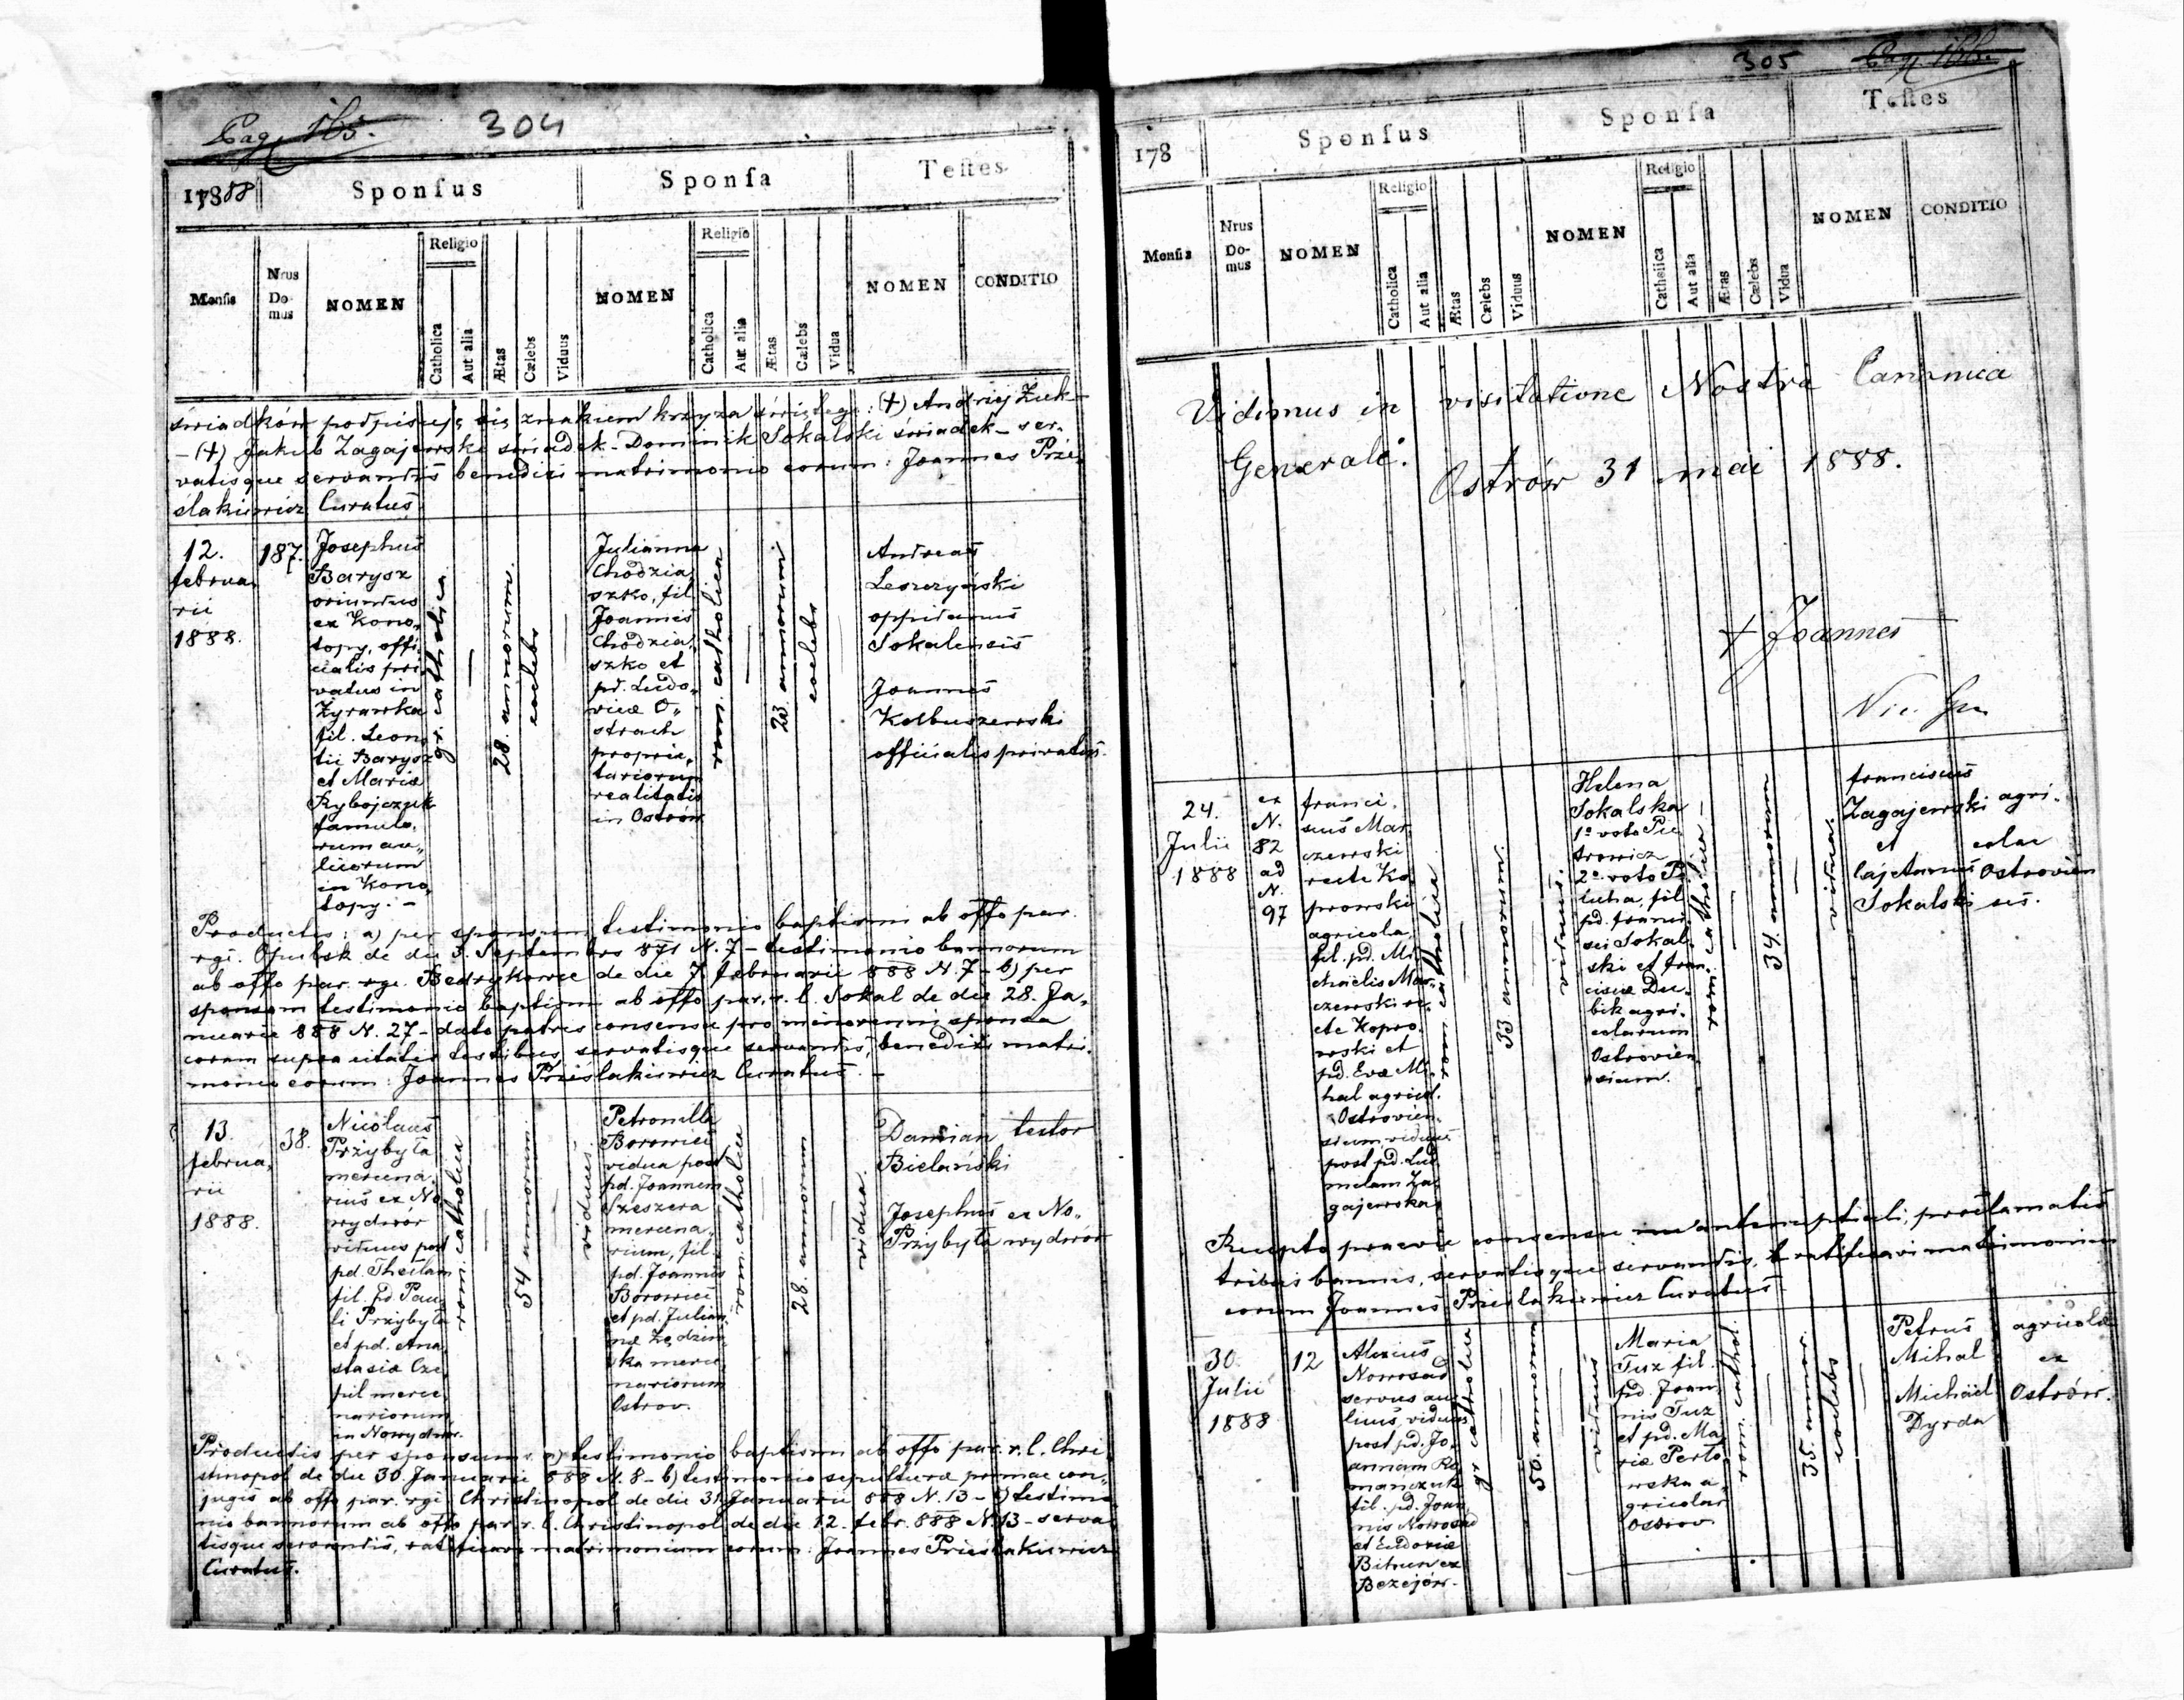 Pag. 165.
304
1788 88
Sponsus
Sponsa
Testes
Mensis
Nrus Domus
NOMEN
Religio
Catholica
Aut alia
Ætas
Cœlebs
Viduus
NOMEN
Religio
Catholica
Aut alia
Ætas
Cœlebs
Vidua
NOMEN
CONDITIO
świadków podpisują się znakiem krzyża świętego: (+) Andrzej Żuk
- (+) Jakub Zagajewski świadek - Dominik Sokalski świadek - ser,
vatisque servandis benedixi matrimonio eorum: Joannes Prze,
ślakiewicz Curatus
12.
februa,
rii
1888.
187.
Josephus
Barysz
oriundus
ex Kono,
topy, offi
cialis pri
vatus in
Żyrawka
fil. Leon
tii Barysz
et Mariæ
Rybojczuk
famulo,
rum au,
licorum
in Kono,
topy. -
gr. catholica
28. annorum.
coelebs
Julianna
Chodzia,
szko, fil.
Joannis
Chodzia,
szko et
pd. Ludo,
vicæ O,,
strach
proprie,
tariorum
realitatis
in Ostrow
rom. catholica
23 annorum
coelebs
Andreas
Leszczyński
oppidanus
Sokalensis
Joannes
Kolbuszewski
officialis privatus.
Productis: a) per sponsum testimonio baptismi ab offo par.
rgi. Opulsk de die 3. Septembris 871 N. 7 - testimonio bannorum
ab offo par. rgi. Bedrykowce de die 7 februarii 888 N. 7 - b) per
sponsam testimonio baptismi ab offo par. r. l. Sokal de die 28. Ja,
nuarii 888 N. 27 - dato patris consensu pro minorenni sponsa
coram supra citatis testibus, servatisque servandis, benedixi matri,
monio eorum: Joannes Prześlakiewicz Curatus. -
13.
februa,
rii
1888.
38.
Nicolaus
Przybyła
mercena,
rius ex No
wydwór
viduus post
pd. Theclam
fil. pd Pau
li Przybyła
et pd. Ana
stasiæ Cze
pil merce
nariorum
in Nowydwor.
rom. catholica
54 annorum
viduus
Petronilla
Borowiec
vidua post
pd. Joannem
Szeszera
mercena,
rium, fil.
pd. Joannis
Borowiec
et pd. Julian
næ Zędziń
ska merce
nariorum
Ostrov.
rom. catholica
28. annorum
vidua.
Damian textor
Bielański
Josephus ex No,
Przybyła wydwór
Productis per sponsum: a) testimonio baptismi ab offo par. r. l. Chri
stinopol de die 30. Januarii 888 N. 8 - b) testimonio sepulturæ primae con,
jugis ab offo par. rgi. Christinopol de die 31 Januarii 888 N. 13 - c) testimo
nio bannorum ab offo par r. l. Christinopol de die 12. febr. 888 N. 13 - serva
tisque servandis, ratificavi matrimonium eorum: Joannes Prześlakiewicz
Curatus.
305
Pag. 166.
178
Sponsus
Sponsa
Testes
Mensis
Nrus Domus
NOMEN
Religio
Catholica
Aut alia
Ætas
Cœlebs
Viduus
NOMEN
Religio
Catholica
Aut alia
Ætas
Cœlebs
Vidua
NOMEN
CONDITIO
Vidimus in visitatione Nostra Canonica
Generali. Ostrów 31 mai 1888.
+ Joannes
Vic. Gen
24.
Julii
1888
ex
N.
82
ad
N.
97
franci,
scus Mar
czewski
recte Ko
prowski
agricola,
fil. pd. Mi
chaelis Mar,
czewski re,
cte Kopro,
wski et
pd. Evæ Mi
hal agricol.
Ostrovien,
sium, viduus
post pd. Lud
milam Za
gajewska
rom. catholica
33 annorum.
viduus.
Helena
Sokalska
1º voto Pie
trowicz
2º voto P
lucha, fil
pd. franci
sci Sokal,
ski et fran
ciscæ Du,
bik agri,
colarum
Ostrovien
sium.
rom. catholica -
34. annorum
vidua.
franciscus
Zagajewski agri,
et colae
Cajetanus Ostrovien
Sokalski ses.
Recepto praevie consensu in antenuptiali, proclamatis
tribus bannis, servatisque servandis, ratificavi matrimonium
eorum Joannes Prześlakiewicz Curatus.
30.
Julii
1888
12
Alexius
Nowosad
servus au
licus, viduus
post pd. Jo,
annam Ro
manczuk
fil. pd. Joan,
nis Nowosad
et Eudoxiæ
Bitrun ex
Bezejów.
gr catholica
50. annorum
viduus
Maria
Tuz fil.
pd. Joan
nis Tuz
et pd. Ma
riæ Perło
wska a,
gricolar
Ostrov
rom. cathol.
35. annor.
coelebs
Petrus agricolæ
Mihal ex
Michael Ostrów.
Dyrda